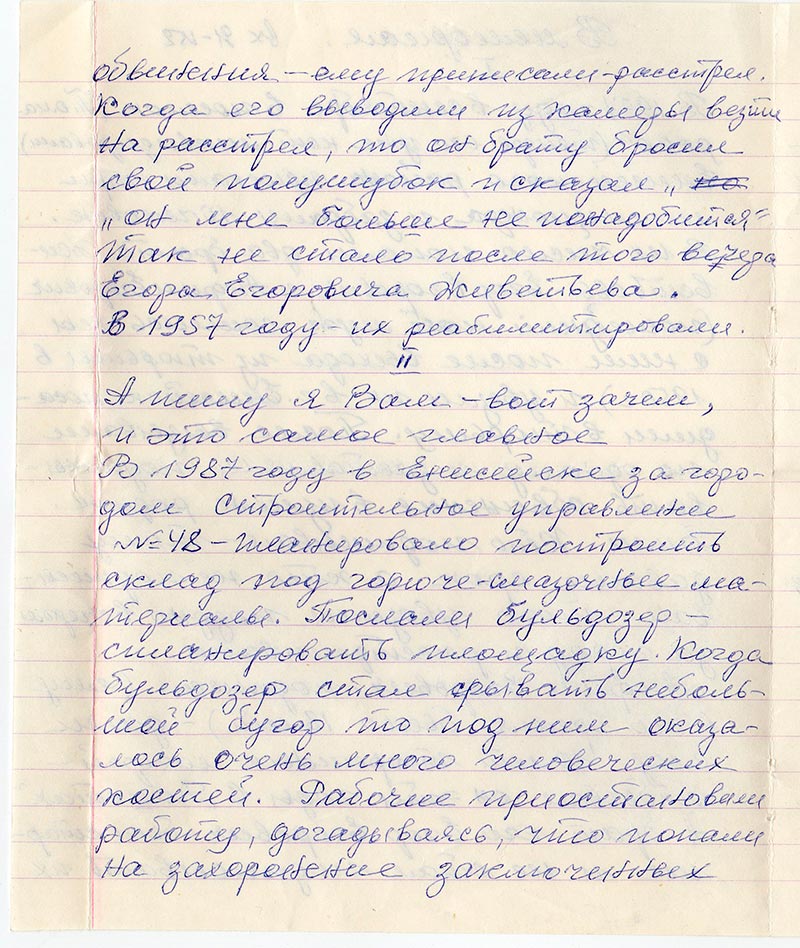 обвинения – ему приписали – расстрел.
Когда его выводили из камеры везти
на расстрел, то он брату бросил
свой полушубок и сказал „ но
„он мне больше не понадобится"
Так не стало после того вечера
Егора Егоровича Живетьева.
В 1957 году – их реабилитировали.
II
А пишу я Вам – вот зачем,
и это самое главное
В 1987 году в Енисейске за горо-
дом строительное управление
№48 – планировало построить
склад под горюче-смазочные ма-
териалы. Послали бульдозер –
спланировать площадку. Когда
бульдозер стал срывать неболь-
шой бугор то под ним оказа-
лось очень много человеческих
костей. Рабочие приостановили
работу, догадываясь, что попали
на захоронение заключенных